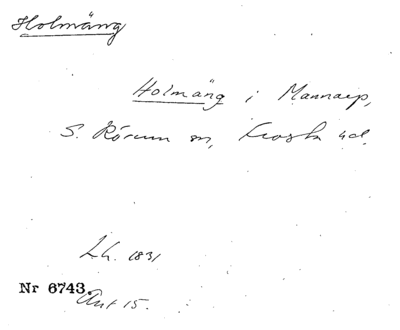 Holmäng
Holmäng i Mannarp,
S. Rörum sn, Frosta hd.
Lh. 1831
Nr 6743.
Ant 15.